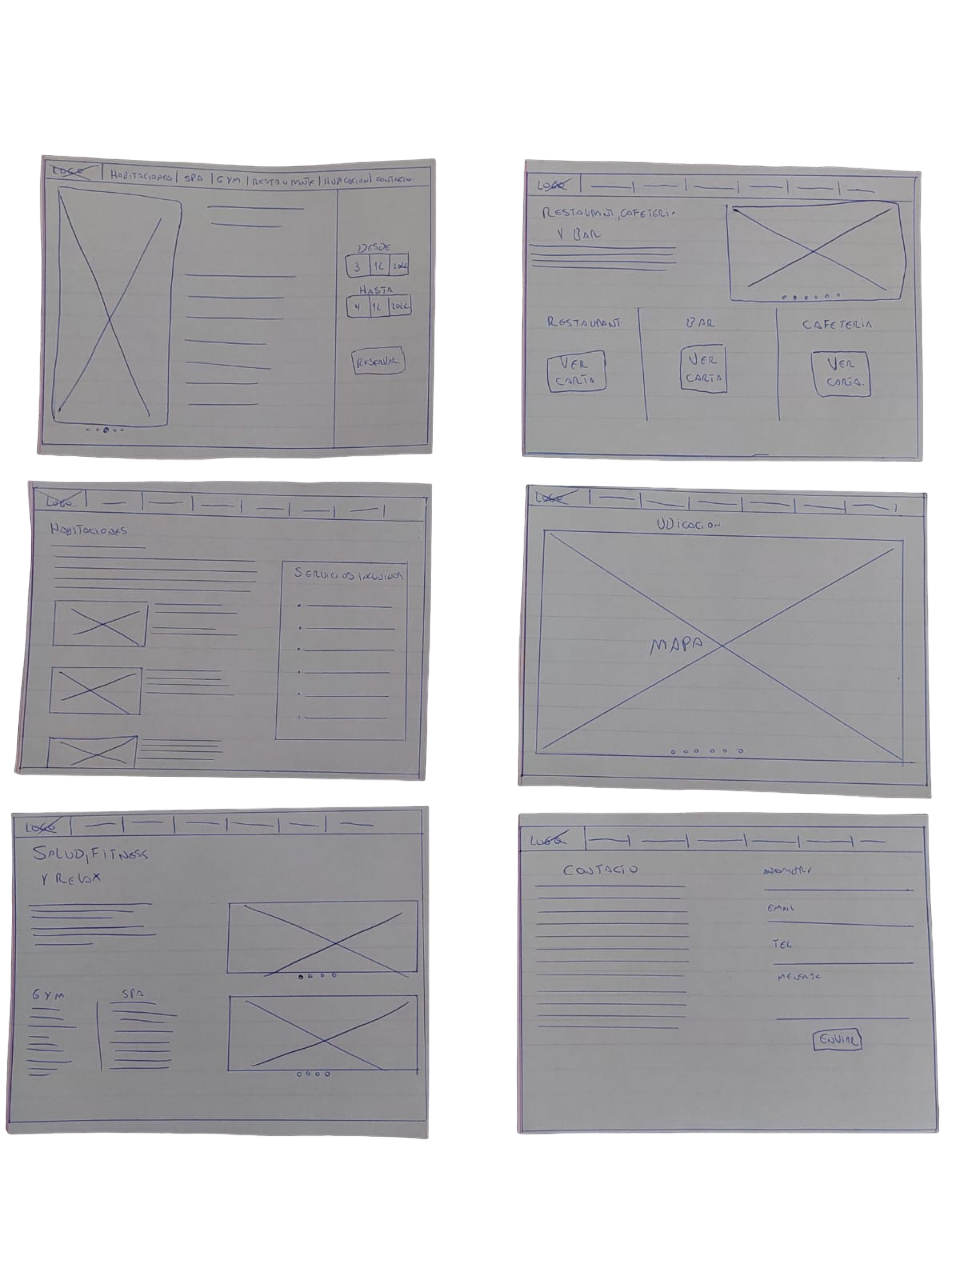 LOGO HABITACIONES SPA GYM RESTAURANTE UBICACION CONTACTO
DESDE
3 12 2022
HASTA
4 12 2022
RESERVAR
LOGO
RESTAURANT, CAFETERIA
Y BAR
RESTAURANT BAR CAFETERIA
VER
CARTA
VER
CARTA
VER
CARTA
LOGO
HABITACIONES
SERVICIOS INCLUIDOS
LOGO
UBICACION
MAPA
LOGO
SALUD, FITNESS
Y RELAX
GYM SPA
LOGO
CONTACTO
NOMBRE
EMAIL
TEL
MENSAJE
ENVIAR